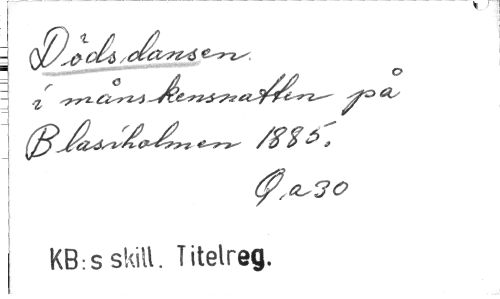 Dödsdansen.
i månskensnatten på
Blasiholmen 1885.
Q.a 30
KB:s skill. Titelreg.